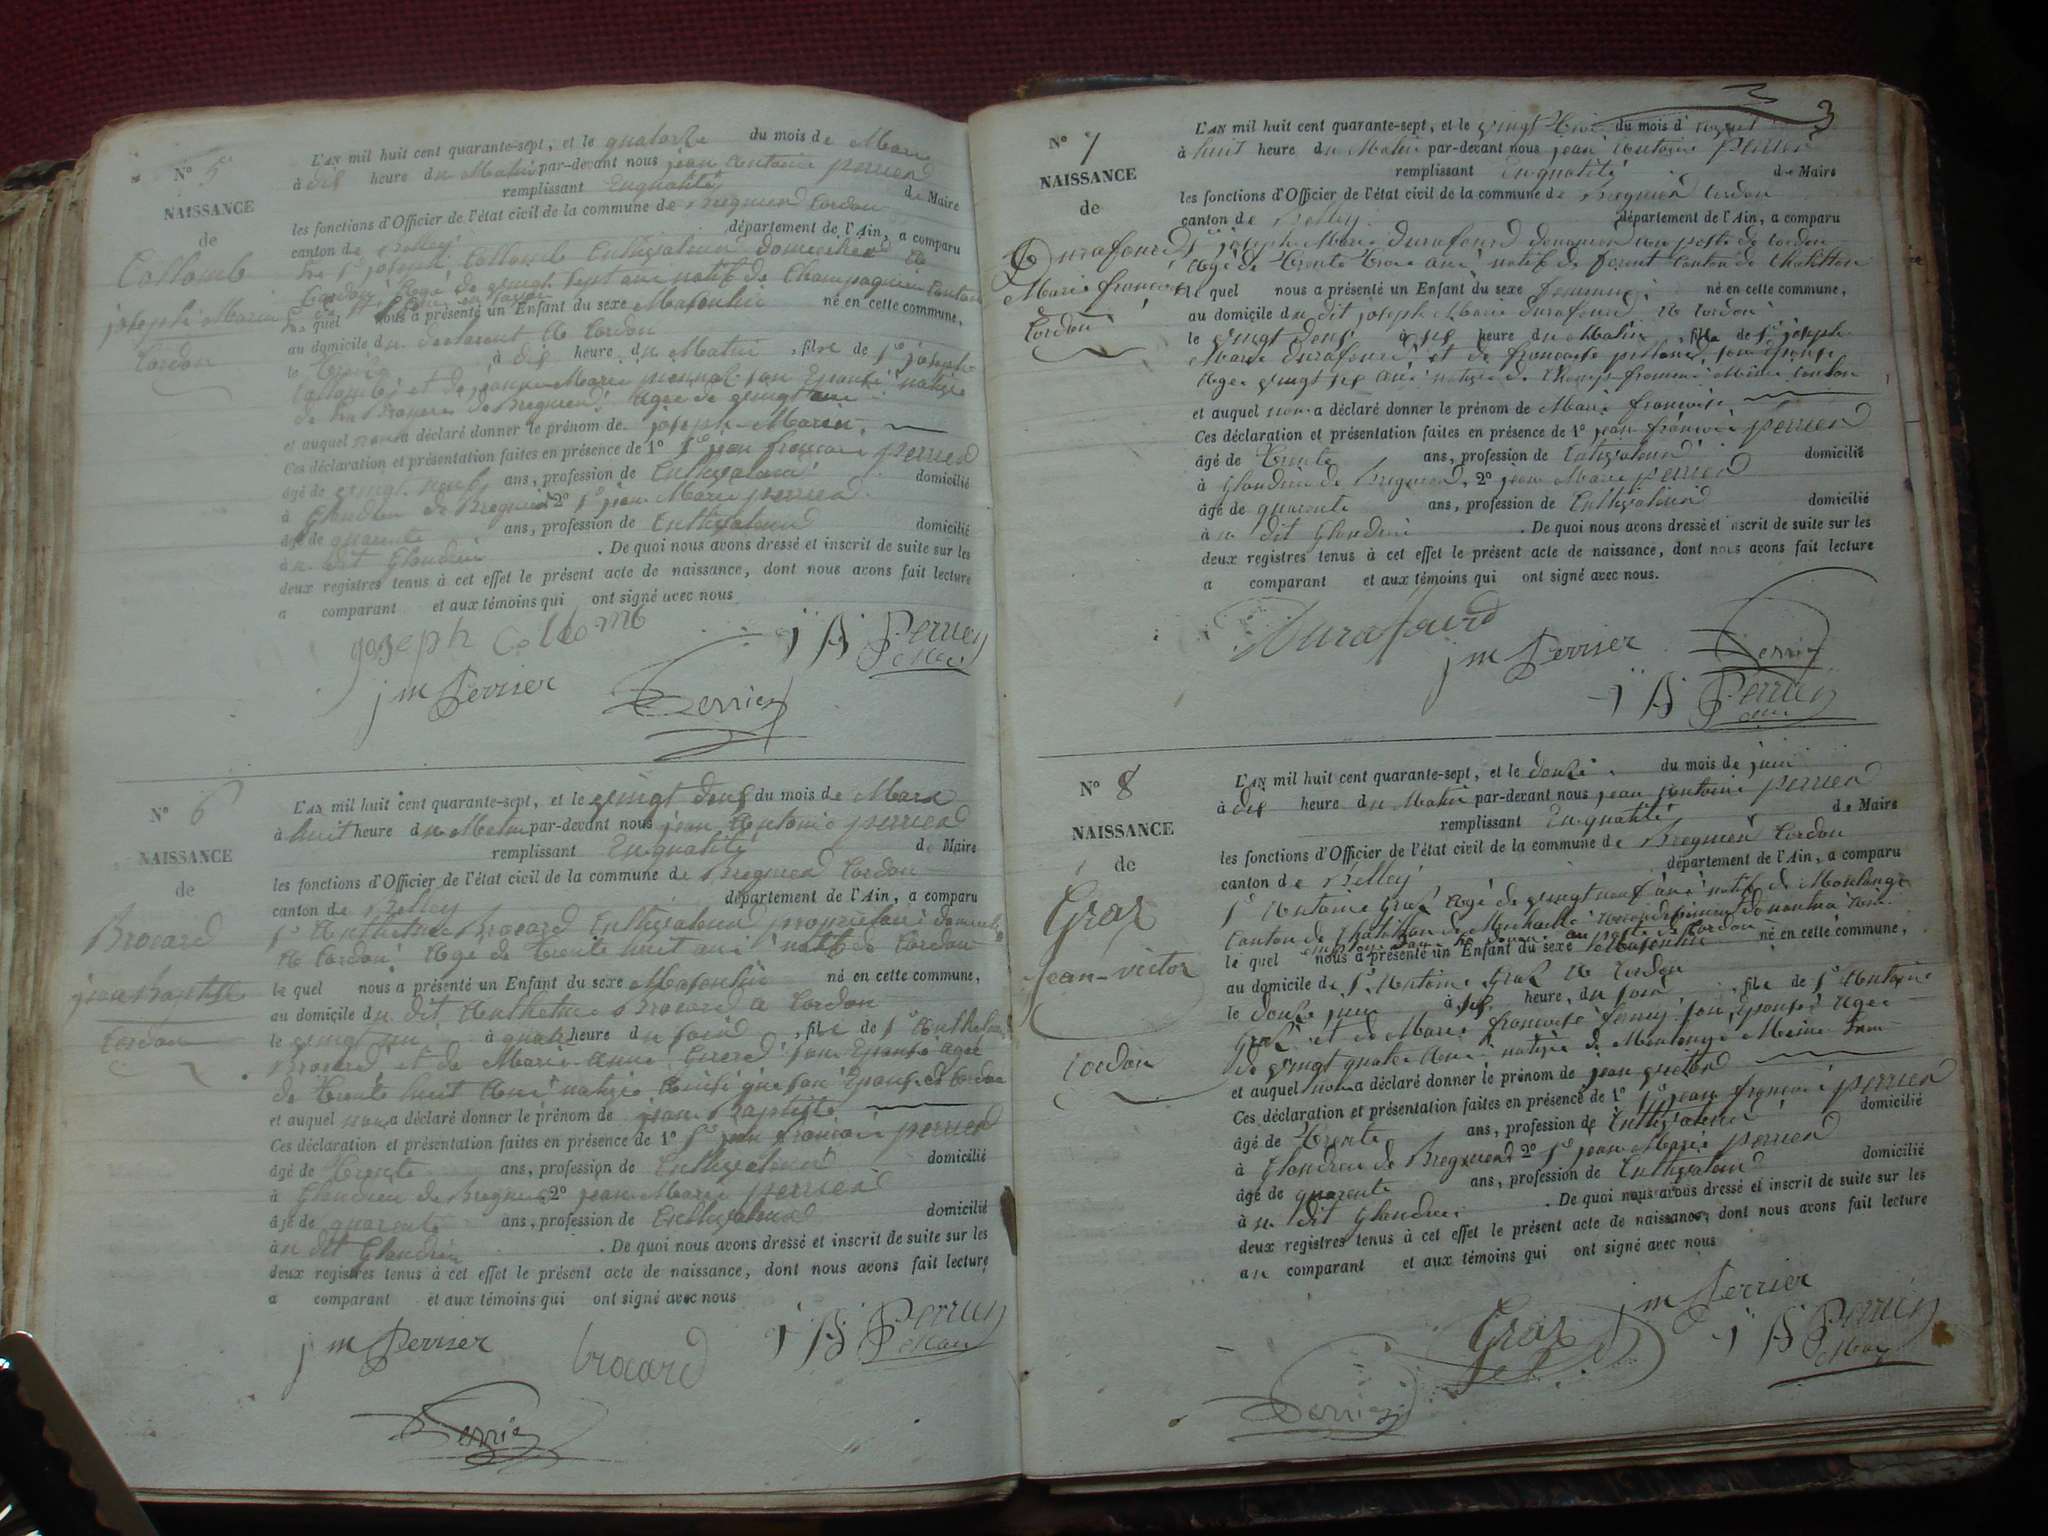 N° 5
NAISSANCE
de
Collomb
joseph Marin
Cordon
L'AN mil huit cent quarante-sept, et le quatorze du mois de Mars
à dix heure du Matin par-devant nous jean antoine perrier
remplissant Enqualité de Maire
les fonctions d'Officier de l'état civil de la commune de Bregnier Cordon
canton de Belley département de l'Ain, a comparu
joseph Collomb Cultivateur domicilié a
Cordon agé de vingt sept ans natif de Champagneu Canton
le quel nous a présenté un Enfant du sexe Masculin né en cette commune,
au domicile du declarant a Cordon
le treize à dix heure du Matin, fils de Sr joseph
Collomb, et de jeanne Marie son Epouse native
de Bregnier, agée de vingt ans
et auquel nous a déclaré donner le prénom de joseph Marin
Ces déclaration et présentation faites en présence de 1° Sr jean francois perrier
âgé de vingt neuf ans, profession de Cultivateur domicilié
à Glandieu de Bregnier 2° Sr jean Marie perrier
âgé de quarente ans, profession de Cultivateur domicilié
à u dit Glandieu. De quoi nous avons dressé et inscrit de suite sur les
deux registres tenus à cet effet le présent acte de naissance, dont nous avons fait lecture
a comparant et aux témoins qui ont signé avec nous
joseph Collomb
j A Perrier
Maire
j m Perrier
Perrier
N° 6
NAISSANCE
de
Brocard
jean Baptiste
Cordon
L'AN mil huit cent quarante-sept, et le vingt deux du mois de Mars
à huit heure du Matin par-devant nous jean Antoine perrier
remplissant Enqualité de Maire
les fonctions d'Officier de l'état civil de la commune de Bregnier Cordon
canton de Belley département de l'Ain, a comparu
Sr Anthelme Brocard Cultivateur propriétaire domicilié
a Cordon agé de trente huit ans natif de Cordon
le quel nous a présenté un Enfant du sexe Masculin né en cette commune,
au domicile du dit Anthelme Brocard a Cordon
le vingt un à quatre heure du soir, fils de Sr Anthelme
Brocard, et de Marie Anne son Epouse agée
de trente huit ans native ainsi que son Epoux de Cordon
et auquel nous a déclaré donner le prénom de jean Baptiste
Ces déclaration et présentation faites en présence de 1° Sr jean francois perrier
âgé de trente ans, profession de Cultivateur domicilié
à Glandieu de Bregnier 2° jean Marie perrier
âgé de quarente ans, profession de Cultivateur domicilié
à u dit Glandieu. De quoi nous avons dressé et inscrit de suite sur les
deux registres tenus à cet effet le présent acte de naissance, dont nous avons fait lecture
a comparant et aux témoins qui ont signé avec nous
j m Perrier
brocard
j A Perrier
Maire
Perrier
3
N° 7
NAISSANCE
de
Durafourd
Marie françoise
Cordon
L'AN mil huit cent quarante-sept, et le vingt trois du mois d'
à huit heure du Matin par-devant nous jean Antoine perrier
remplissant Enqualité de Maire
les fonctions d'Officier de l'état civil de la commune de Bregnier Cordon
canton de Belley département de l'Ain, a comparu
Sr joseph Marie Durafourd douanier au poste de Cordon
agé de trente trois ans natif de Canton de Chatillon
le quel nous a présenté un Enfant du sexe feminin né en cette commune,
au domicile du dit joseph Marie durafourd a Cordon
le vingt deux à six heure du Matin, fille de Sr joseph
Marie durafourd et de francoise son Epouse
agée vingt six ans native de Champ fromier Même Canton
et auquel nous a déclaré donner le prénom de Marie françoise
Ces déclaration et présentation faites en présence de 1° jean francois perrier
âgé de trente ans, profession de Cultivateur domicilié
à Glandieu de Bregnier, 2° jean Marie perrier
âgé de quarente ans, profession de Cultivateur domicilié
à u dit Glandieu. De quoi nous avons dressé et inscrit de suite sur les
deux registres tenus à cet effet le présent acte de naissance, dont nous avons fait lecture
a comparant et aux témoins qui ont signé avec nous.
Durafourd
j m Perrier
Perrier
j A Perrier
N° 8
NAISSANCE
de
Graz
jean-victor
Cordon
L'AN mil huit cent quarante-sept, et le douze du mois de juin
à dix heure du Matin par-devant nous jean Antoine perrier
remplissant Enqualité de Maire
les fonctions d'Officier de l'état civil de la commune de Bregnier Cordon
canton de Belley département de l'Ain, a comparu
Sr Antoine Graz agé de vingt neuf ans natif de Montange
Canton de Chatillon de Michaille
au poste de Cordon
le quel nous a présenté un Enfant du sexe Masculin né en cette commune,
au domicile de Sr Antoine Graz a Cordon
le douze juin à six heure, du soir, fils de Sr Antoine
Graz et de Marie françoise son Epouse agée
de vingt quatre ans native de Montange Même
et auquel nous a déclaré donner le prénom de jean victor
Ces déclaration et présentation faites en présence de 1° Sr jean francois perrier
âgé de trente ans, profession de Cultivateur domicilié
à Glandieu de Bregnier 2° Sr jean Marie perrier
âgé de quarente ans, profession de Cultivateur domicilié
à u dit Glandieu. De quoi nous avons dressé et inscrit de suite sur les
deux registres tenus à cet effet le présent acte de naissance, dont nous avons fait lecture
au comparant et aux témoins qui ont signé avec nous
j m Perrier
Graz
j A Perrier
Maire
Perrier